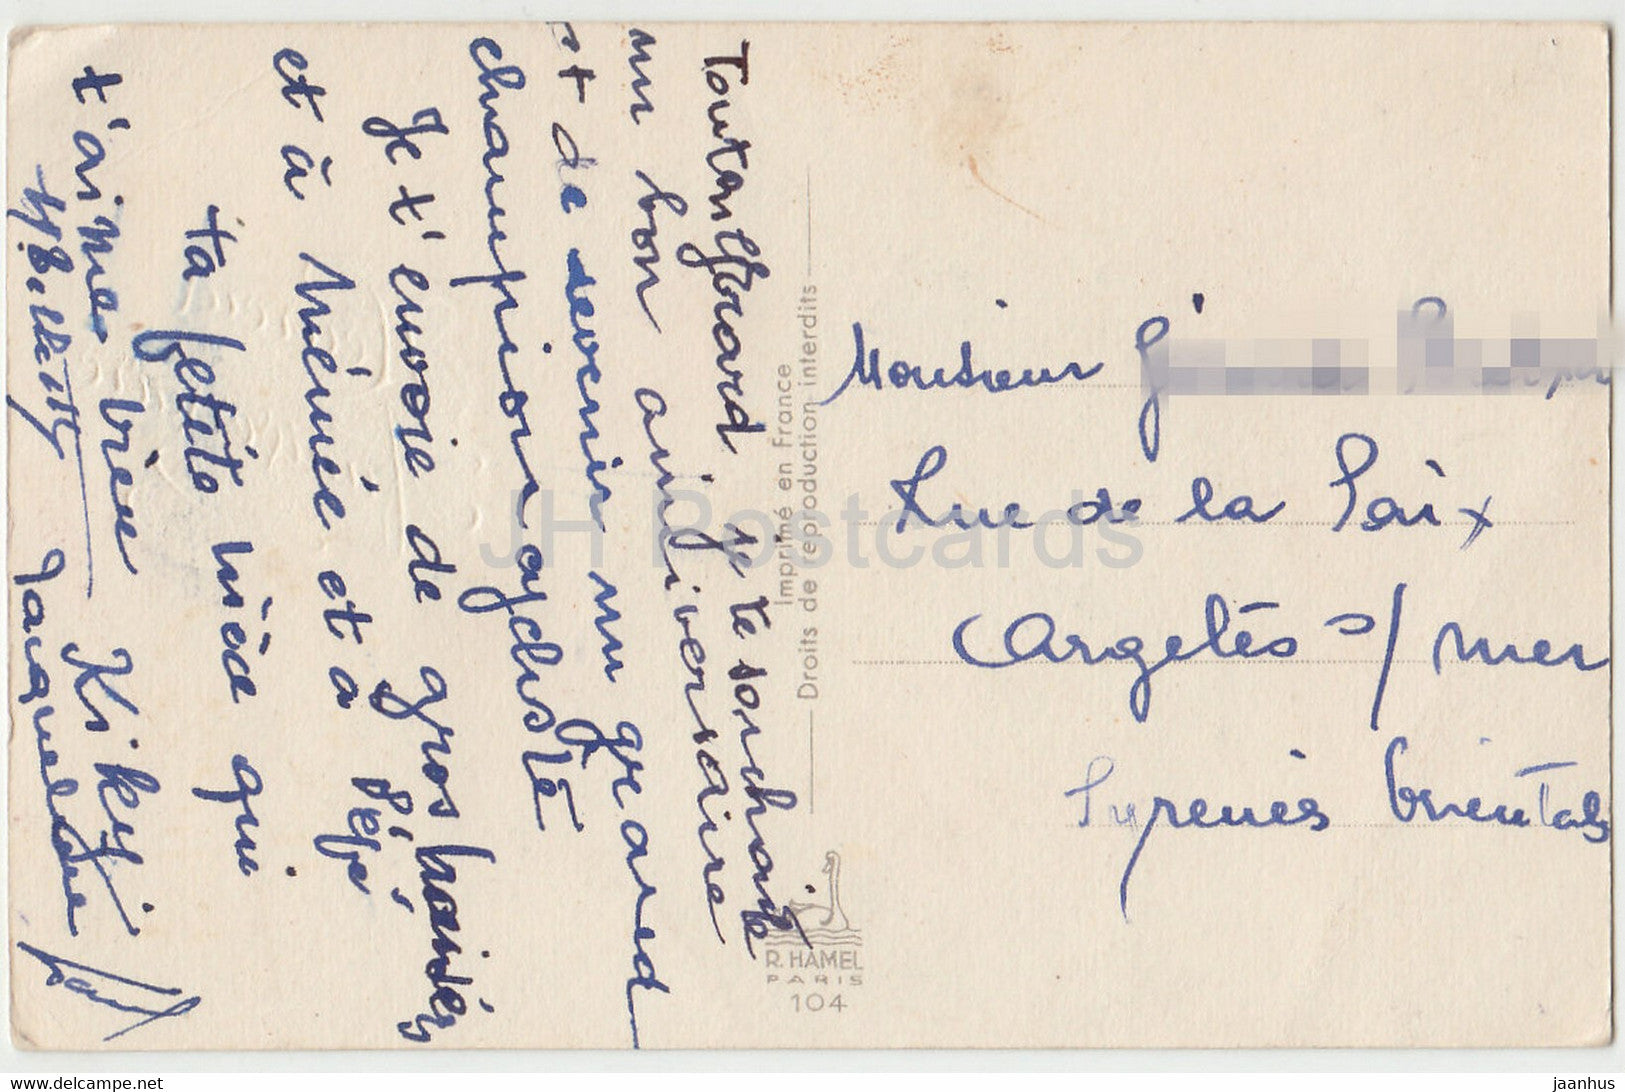 Tonton Gérard je te souhaite
un bon anniversaire
et de devenir un grand
champion cycliste
Je t'envoie de gros baisés
et à Mémée et a Pépé
ta petite nièce qui
t'aimes bien Kiki
Jacqueline
Imprimé en France
Droits de reproduction interdits
Monsieur
Rue de la Paix
Argelès s/ mer
Pyrenées Orientales
R. HAMEL
PARIS
104
JH Postcards
www.delcampe.net
jaanhus